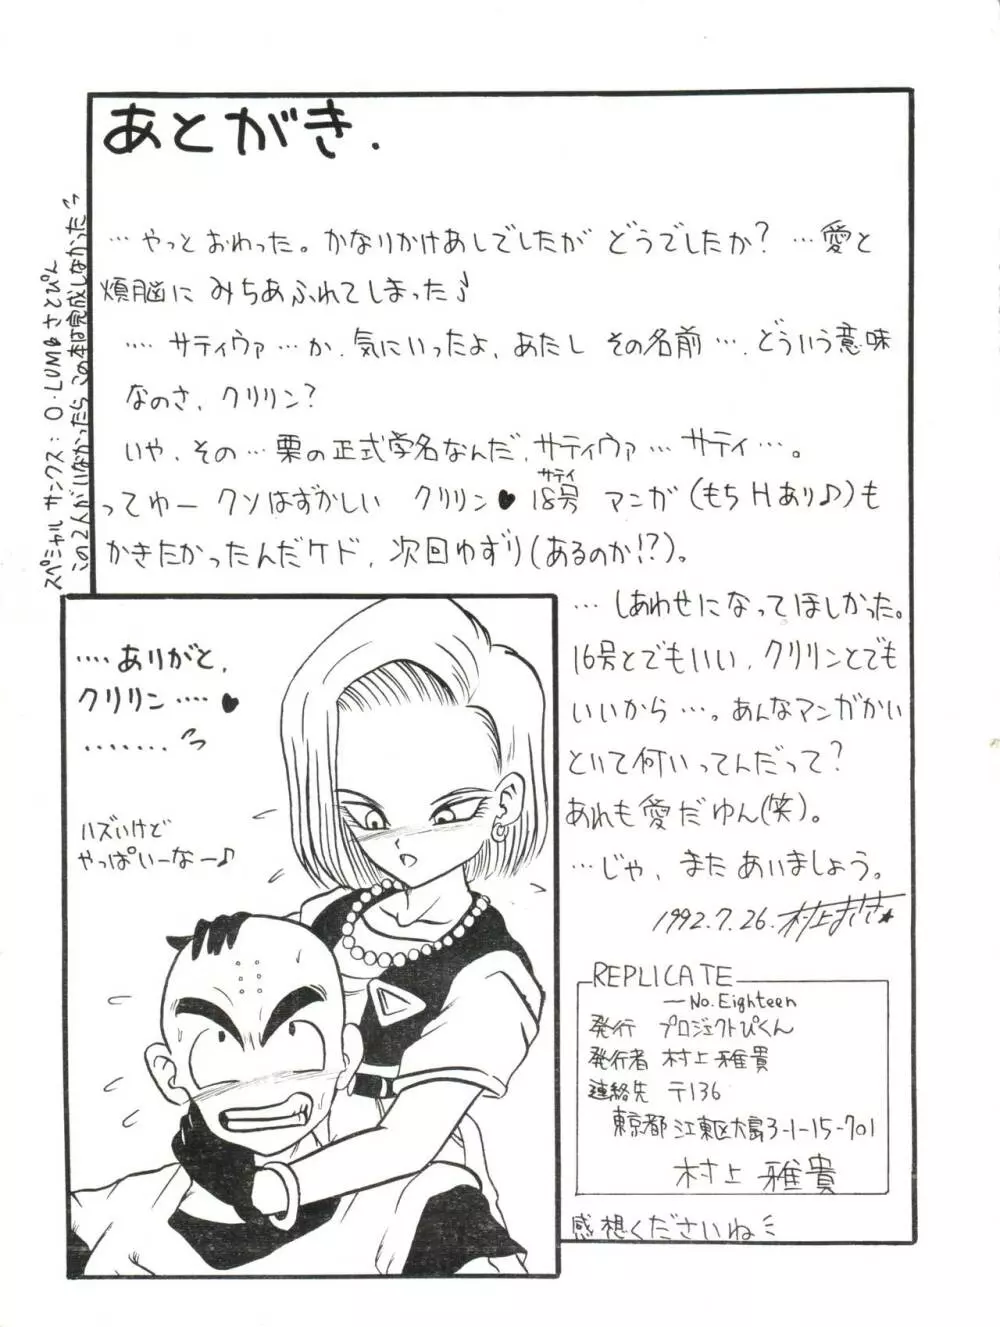 あとがき.
…やっとおわった。かなりかけあしでしたが どうでしたか？…愛と
煩脳に みちあふれてしまった♪
…. サティヴァ…か. 気にいったよ、あたし その名前…. どういう意味
なのさ、クリリン？
いや、その…栗の正式学名なんだ、サティヴァ… サティ…。
ってゆー クソはずかしい クリリン♥18号 マンガ(もちHあり♪)も
サティ
かきたかったんだケド、次回ゆずり(あるのか!?)。
… しあわせになってほしかった。
16号とでもいい、クリリンとでも
いいから…。あんなマンガかい
といて何いってんだって？
あれも愛だゆん(笑)。
…じゃ、またあいましょう。
1992.7.26. 村上まさき★
スペシャル サンクス：O・LUM さとぴん
この2人がいなかったら この本は完成しなかった
….ありがと、
クリリン….♥
.......
ハズいけど
やっぱいーなー♪
REPLICATE
—No.Eighteen
発行 プロジェクトぴくん
発行者 村上 雅貴
連絡先 〒136
東京都 江東区大島3-1-15-701
村上 雅貴
感想くださいね